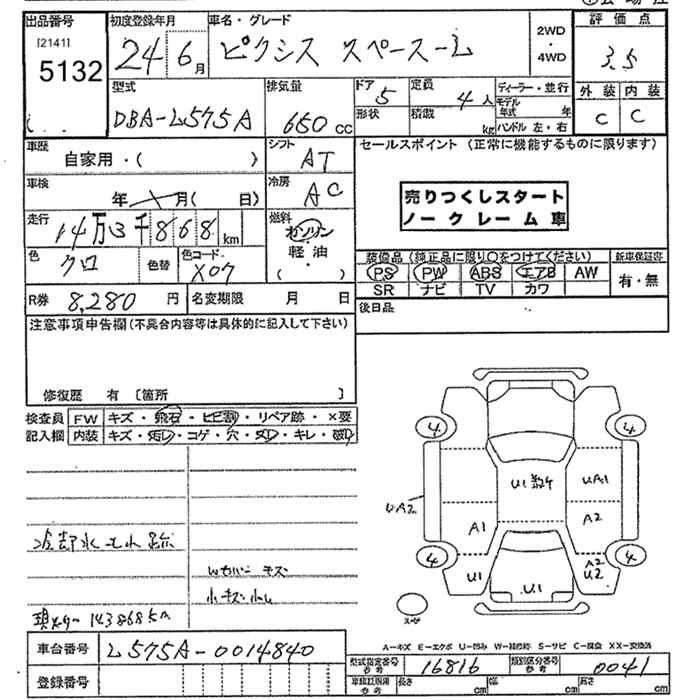 出品番号 初度登録年月 車名・グレード 2WD・4WD 評価点
[2141]
5132 24年6月 ピクシス スペース-L 3.5
型式 排気量 ドア 5 定員 4人 ディーラー・並行 外装 内装
DBA-L575A 660cc 形状 積載 kg モデル年式 年 C C
ハンドル 左・右
車歴 自家用・( ) シフト AT セールスポイント (正常に機能するものに限ります)
車検 年 月( 日) 冷房 AC
売りつくしスタート
ノークレーム車
走行 14万3千868km 燃料 ガソリン・軽油( )
色 クロ 色替 色コード X07
装備品 (純正品に限り○をつけてください) 新車保証書
PS PW ABS エアB AW 有・無
SR ナビ TV カワ
R券 8,280円 名変期限 月 日 後日品
注意事項申告欄(不具合内容等は具体的に記入して下さい)
修復歴 有 [箇所 ]
検査員 FW キズ・飛石・ヒビ割・リペア跡・×要
記入欄 内装 キズ・汚レ・コゲ・穴・スレ・キレ・破レ
4 4
U1 数ケ UA1
UA2
A1 A2
4 4
U1 A2 U2
U1
冷却水モレ跡
Wカバー キズ
小キズ小ヘコ
現メーター 143868km
スペア
A-キズ E-エクボ U-凹み W-補修跡 S-サビ C-腐食 XX-交換済
車台番号 L575A-0014840
型式指定番号 参考 16816 類別区分番号 参考 0041
登録番号 車検証明用 参考 長さ cm 幅 cm 高さ cm